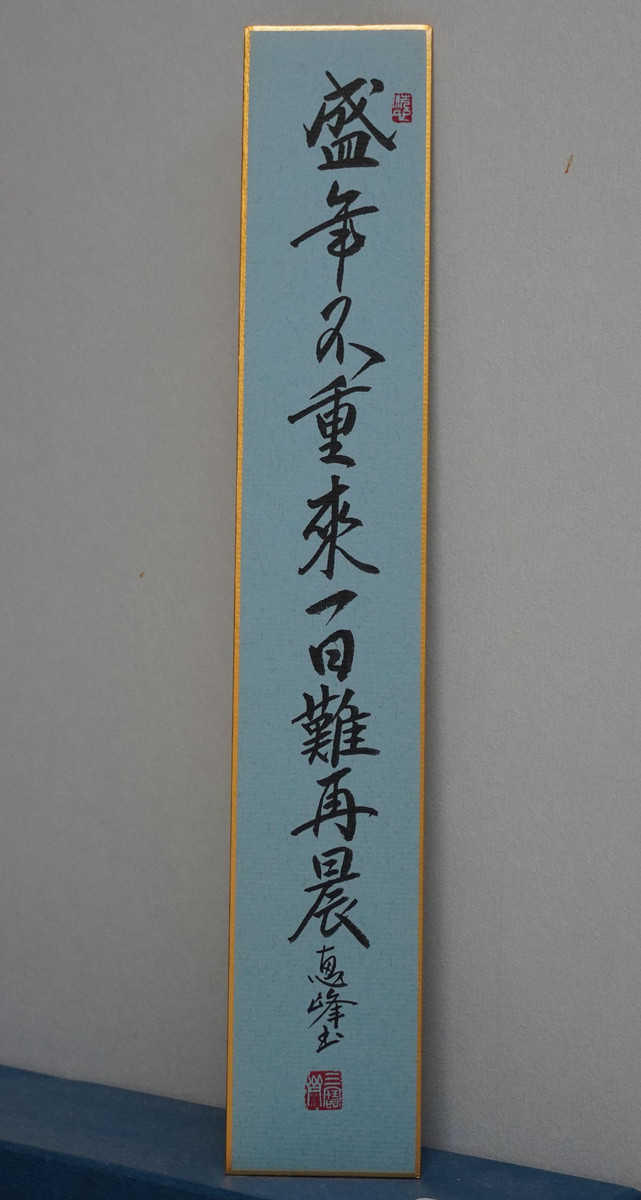 盛年不重來一日難再晨
恵峰書